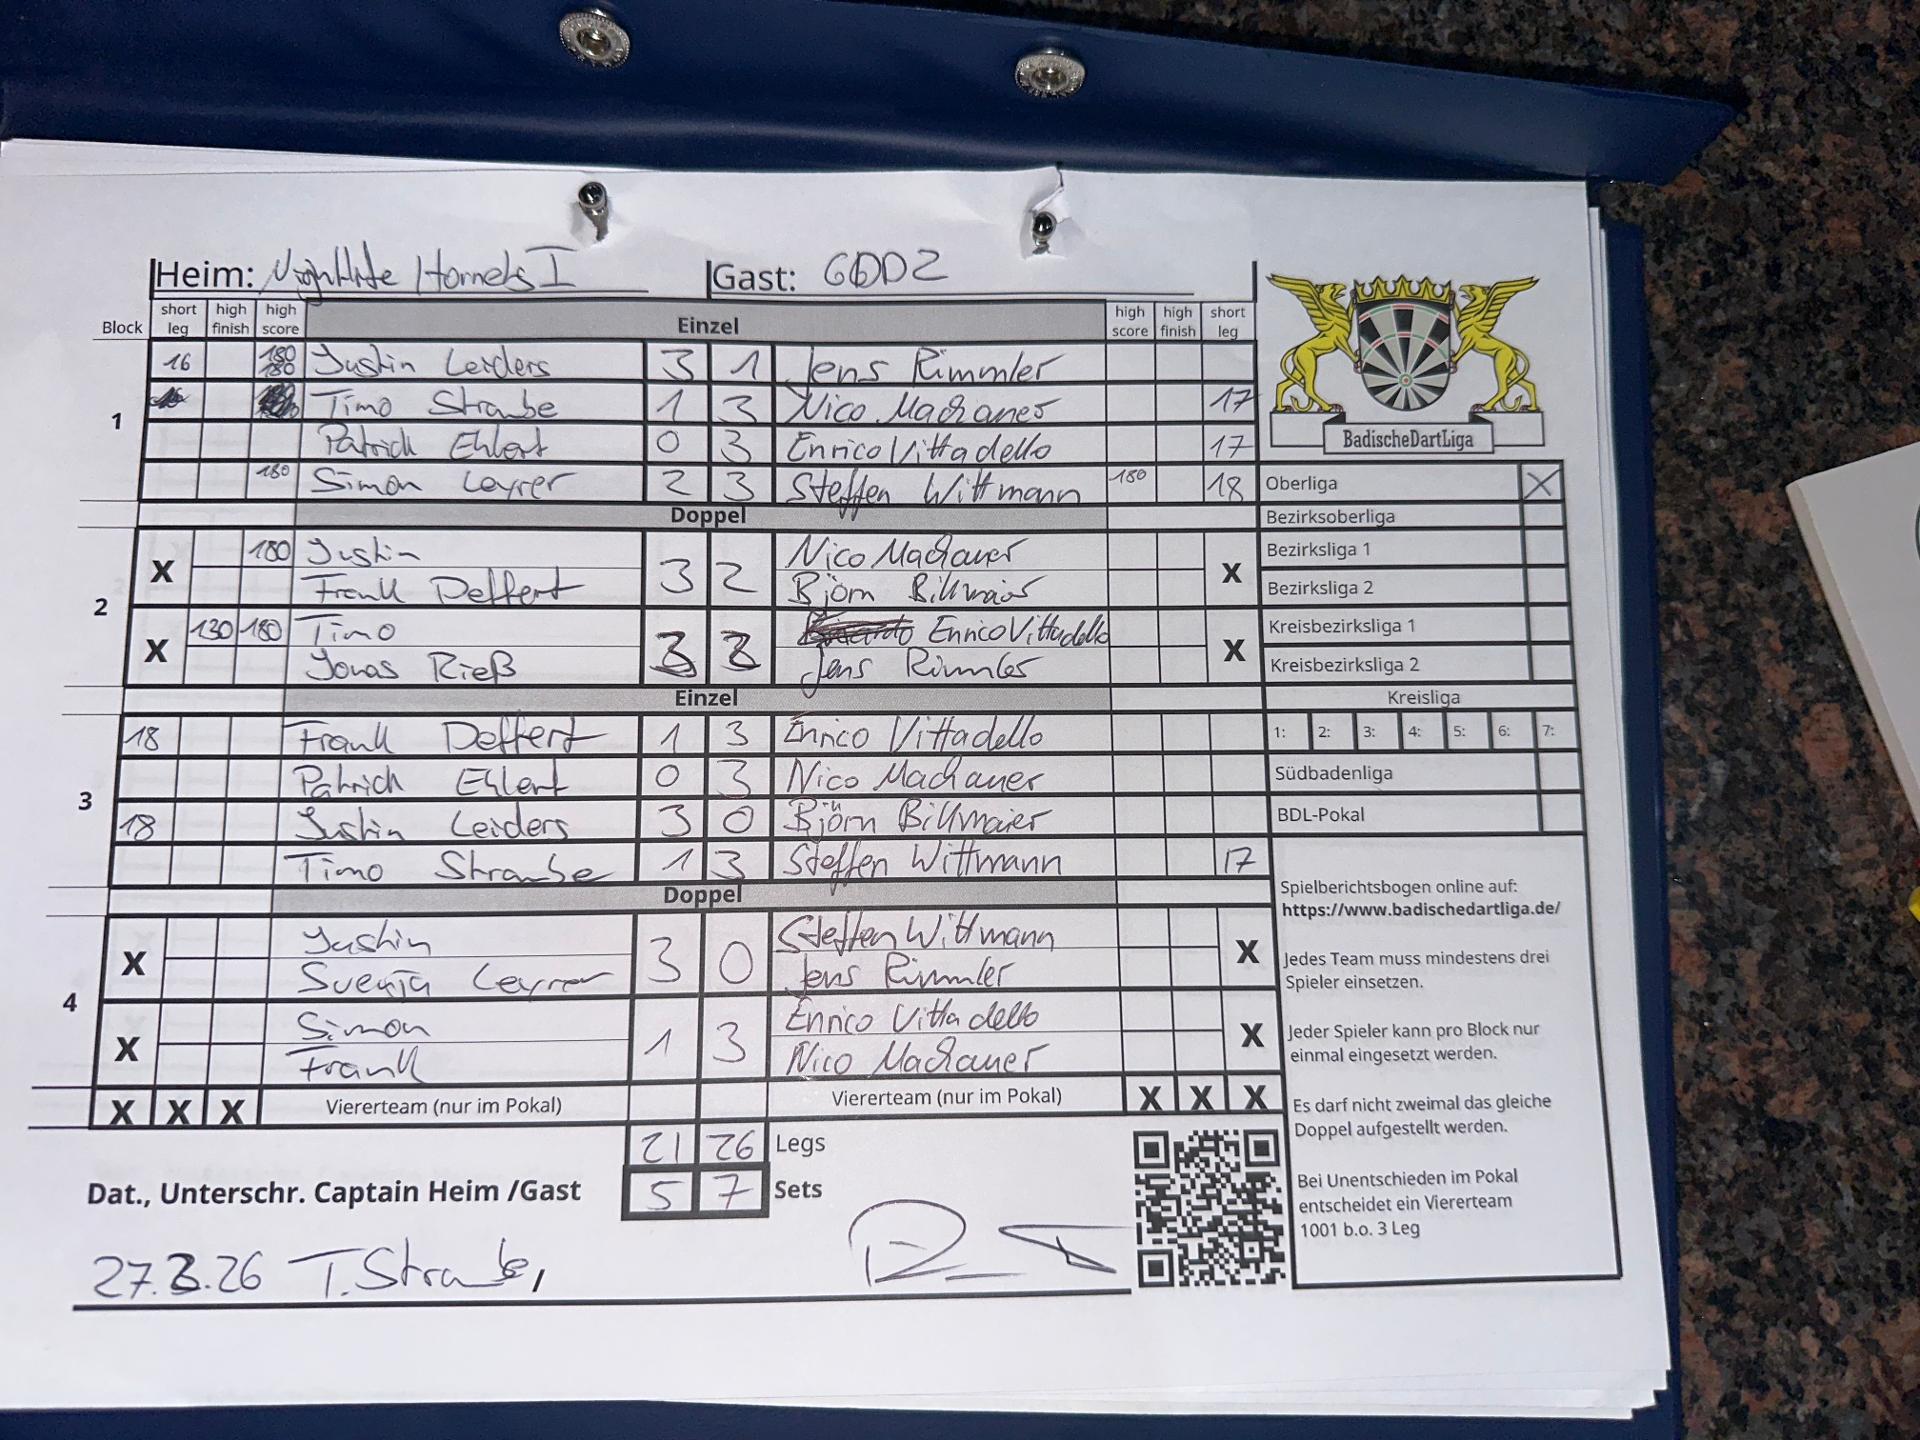 Heim: Nightlife Hornets I Gast: GDD2
Block short leg high finish high score Einzel high score high finish short leg
1
16 180 180 Justin Leiders 3 1 Jens Rimmler
Timo Straube 1 3 Nico Machauer 17
Patrick Ehlert 0 3 Enrico Vittadello 17
180 Simon Leyrer 2 3 Steffen Wittmann 180 18
Doppel
2
X 180 Justin 3 2 Nico Machauer X
Frank Deffert Björn Billmaier
X 130 180 Timo Enrico Vittadello X
Jonas Rieß Jens Rimmler
Einzel
3
18 Frank Deffert 1 3 Enrico Vittadello
Patrick Ehlert 0 3 Nico Machauer
18 Justin Leiders 3 0 Björn Billmaier
Timo Straube 1 3 Steffen Wittmann 17
Doppel
4
X Justin 3 0 Steffen Wittmann X
Svenja Leyrer Jens Rimmler
X Simon 1 3 Enrico Vittadello X
Frank Nico Machauer
X X X Viererteam (nur im Pokal) Viererteam (nur im Pokal) X X X
21 26 Legs
Dat., Unterschr. Captain Heim /Gast 5 7 Sets
27.3.26 T. Straube,
BadischeDartLiga
Oberliga X
Bezirksoberliga
Bezirksliga 1
Bezirksliga 2
Kreisbezirksliga 1
Kreisbezirksliga 2
Kreisliga
1: 2: 3: 4: 5: 6: 7:
Südbadenliga
BDL-Pokal
Spielberichtsbogen online auf:
https://www.badischedartliga.de/
Jedes Team muss mindestens drei
Spieler einsetzen.
Jeder Spieler kann pro Block nur
einmal eingesetzt werden.
Es darf nicht zweimal das gleiche
Doppel aufgestellt werden.
Bei Unentschieden im Pokal
entscheidet ein Viererteam
1001 b.o. 3 Leg